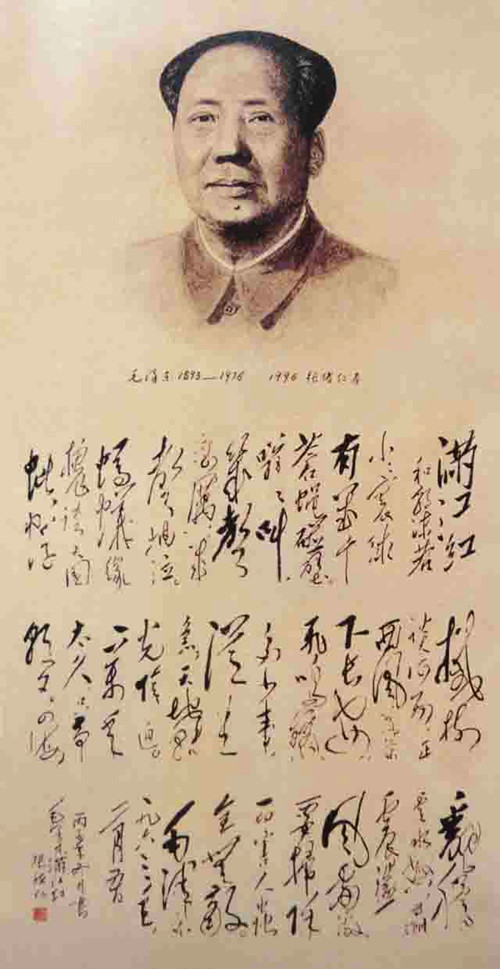 毛泽东 1893—1976 1996 张绪仁
满江红
和郭沫若
小小寰球
有几个
蒼蝇碰壁
嗡嗡叫
幾聲
凄厉几
聲抽泣
螞蟻缘
槐誇大國
蚍蜉
撼樹
谈何易正
西风落葉
下长安
飞鸣镝
多少事
從来
急天地转
光阴迫
一万年
太久只争
朝夕四海
翻腾
云水怒五洲
震荡
风雷激
要扫除
一切害人虫
全無敌
毛泽东
一九六三年
一月九日
丙子年月书
毛主席满江红
张绪仁